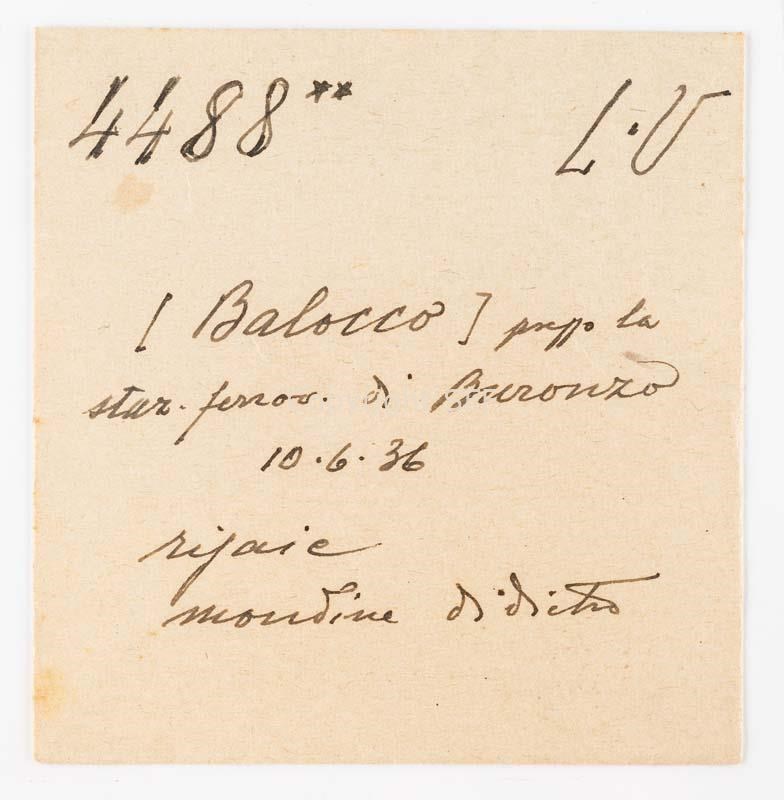 4488** L.V
[ Balocco ] presso la
staz. ferrov. di Buronzo
10.6.36
risaie
mondine di dietro